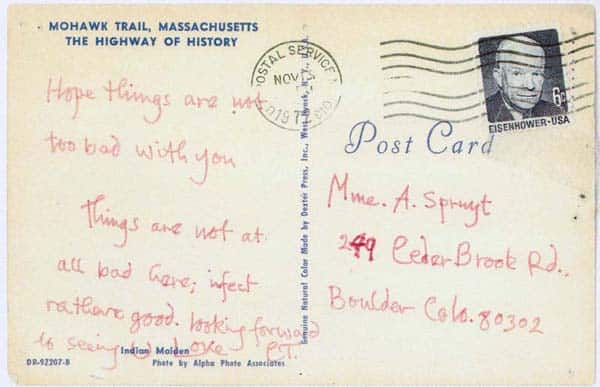 MOHAWK TRAIL, MASSACHUSETTS
THE HIGHWAY OF HISTORY
Hope things are not
too bad with you
Things are not at
all bad here; infect
rathere good. looking forward
to seeing U Love P.T.
Indian Maiden
DR-92207-B
Photo by Alpha Photo Associates
Genuine Natural Color Made by Dexter Press, Inc., West Nyack, N. Y., U.S.A.
POSTAL SERVICE
NOV
1972
6c
EISENHOWER·USA
Post Card
Mme. A. Spruyt
249 CederBrook Rd.,
Boulder Colo. 80302